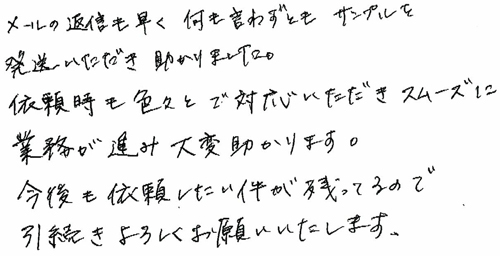 メールの返信も早く 何も言わずとも サンプルを
発送いただき 助かりました。
依頼時も色々とご対応いただきスムーズに
業務が進み大変助かります。
今後も依頼したい件が残ってるので
引続きよろしくお願いいたします。